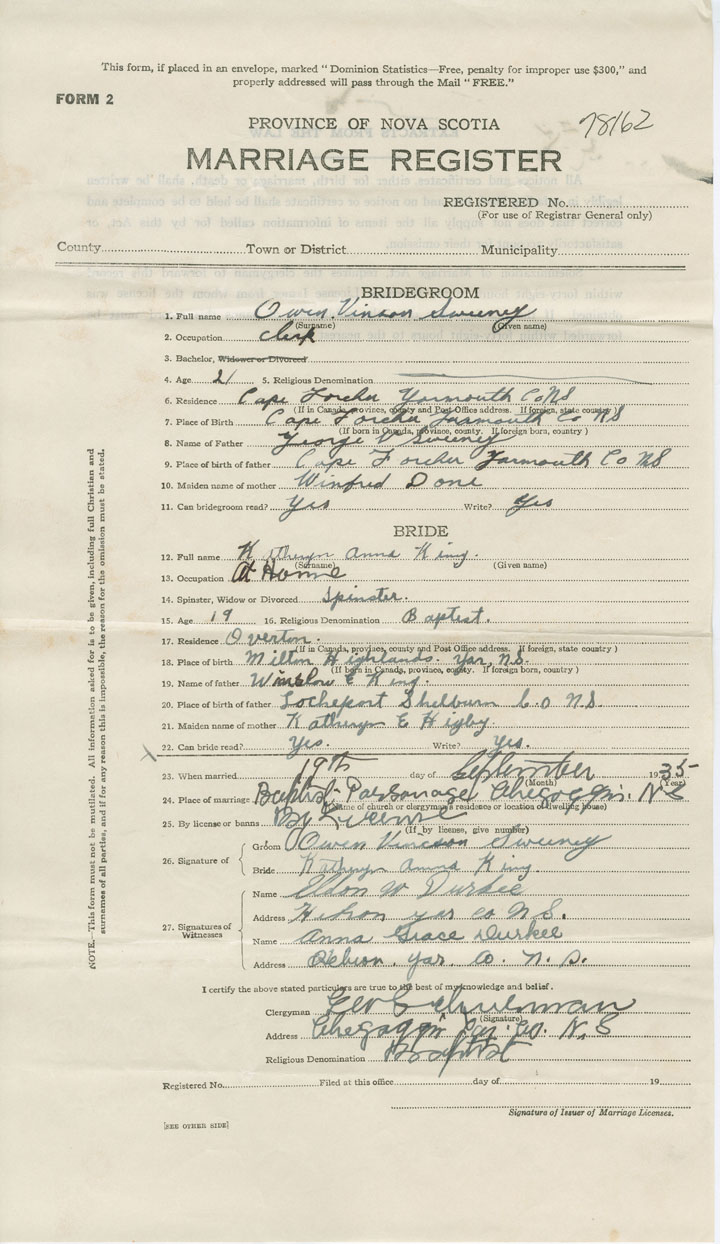 This form, if placed in an envelope, marked "Dominion Statistics—Free, penalty for improper use $300," and
properly addressed will pass through the Mail "FREE."
FORM 2
PROVINCE OF NOVA SCOTIA
78162
MARRIAGE REGISTER
REGISTERED No.
(For use of Registrar General only)
County Town or District Municipality
BRIDEGROOM
1. Full name Owen Vinson Sweeney
(Surname) (Given name)
2. Occupation clerk
3. Bachelor, Widower or Divorced
4. Age 21 5. Religious Denomination
6. Residence Cape Forchu Yarmouth Co NS
(If in Canada, provinces, county and Post Office address. If foreign, state country)
7. Place of Birth Cape Forchu Yarmouth Co NS
(If born in Canada, province, county. If foreign born, country)
8. Name of Father George V Sweeney
9. Place of birth of father Cape Forchu Yarmouth Co NS
10. Maiden name of mother Winfred Done
11. Can bridegroom read? Yes Write? Yes
BRIDE
12. Full name Katheryn Anna King.
(Surname) (Given name)
13. Occupation At Home
14. Spinster, Widow or Divorced Spinster.
15. Age 19 16. Religious Denomination Baptist.
17. Residence Overton.
(If in Canada, provinces, county and Post Office address. If foreign, state country)
18. Place of birth Milton Highlands. Yar, N.S.
(If born in Canada, province, county. If foreign born, country)
19. Name of father Winslow E King.
20. Place of birth of father Locheport Shelburn Co N.S.
21. Maiden name of mother Katheryn E Higby.
22. Can bride read? Yes. Write? Yes.
23. When married 19th day of September 1935
(Month) (Year)
24. Place of marriage Baptist Parsonage Chegoggin. N S
(Name of church or clergyman's residence or location of dwelling house)
25. By license or banns By License
(If by license, give number)
26. Signature of
Groom Owen Vinson Sweeney
Bride Katheryn Anna King
27. Signatures of Witnesses
Name W Durkee
Address Hebron Yar Co N.S.
Name Anna Grace Durkee
Address Hebron. Yar. Co. N. S.
I certify the above stated particulars are true to the best of my knowledge and belief.
Clergyman Geo
(Signature)
Address Chegoggin Yar. Co. N.S
Religious Denomination Baptist
Registered No. Filed at this office day of 19
Signature of Issuer of Marriage Licenses.
[SEE OTHER SIDE]
NOTE.—This form must not be mutilated. All information asked for is to be given, including full Christian and
surnames of all parties, and if for any reason this is impossible, the reason for the omission must be stated.